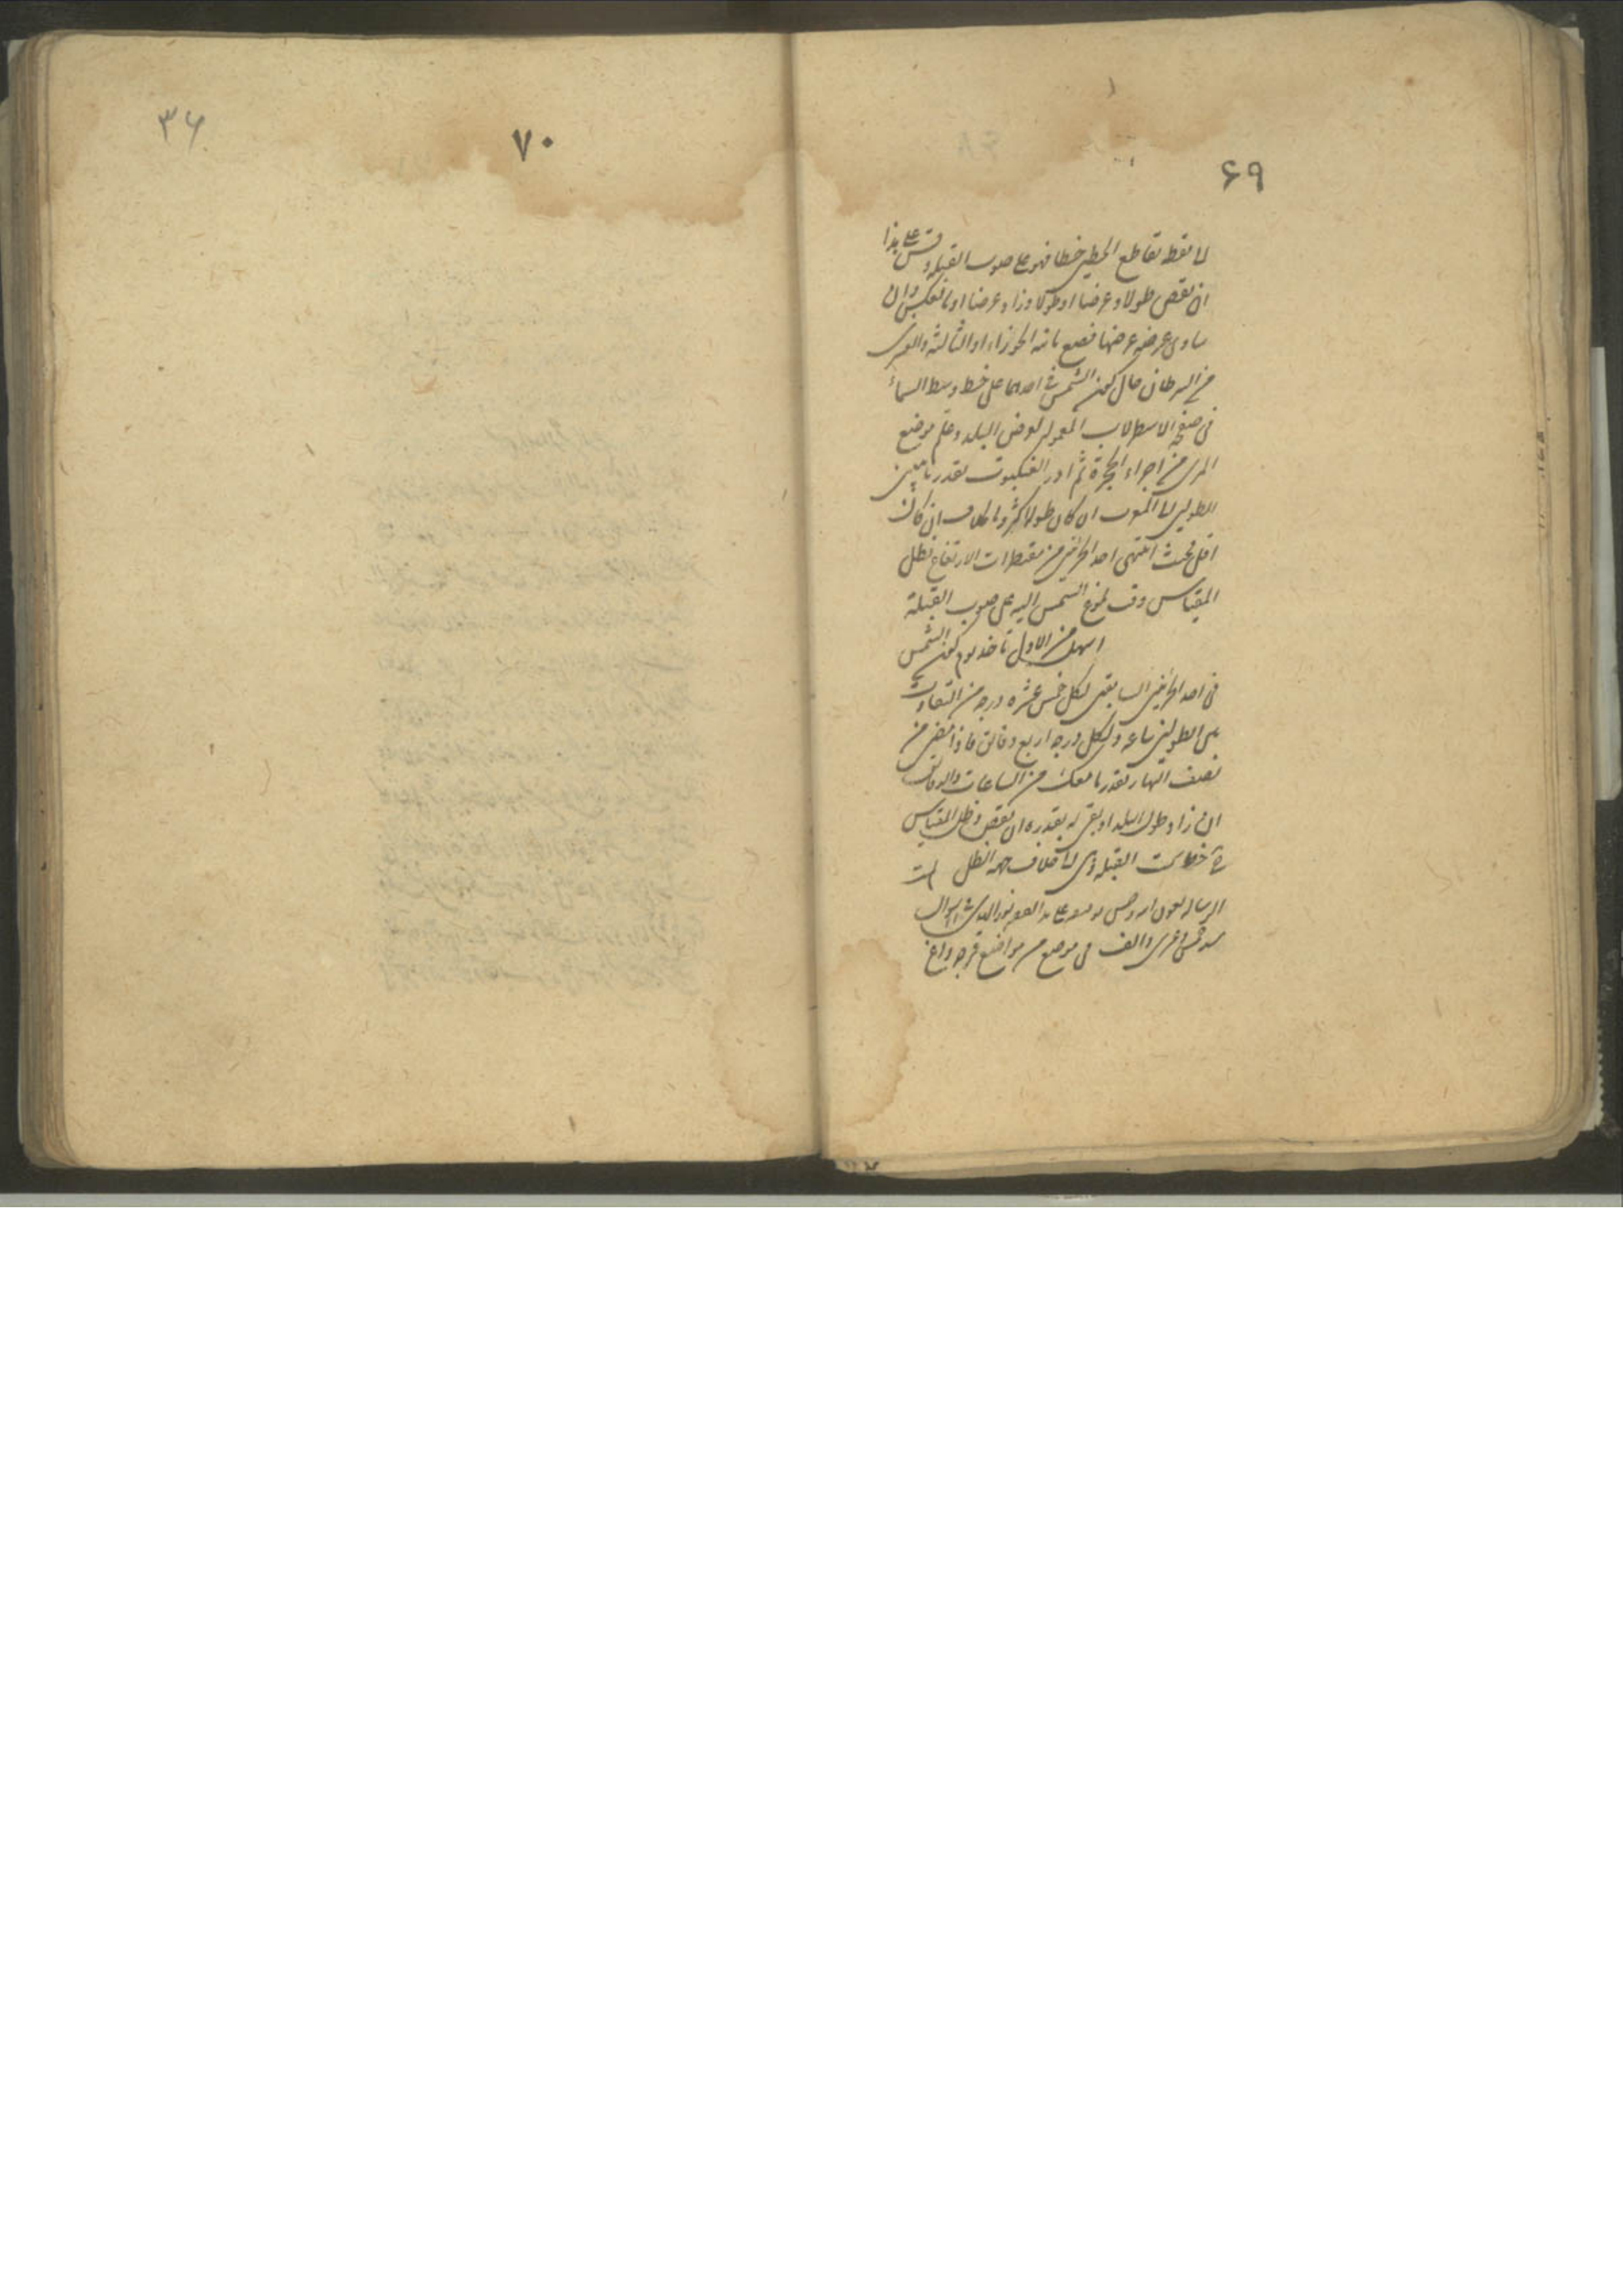 ۳۶
۷۰
۶۹
نقطة تقاطع الخطين خطا فهو على صوب القبلة وقس على هذا
ان نقص طولا وعرضا او طولا وزاد عرضا او بالعكس وان
ساوى عرضه عرضها فضع ثامنة الجوزاء او الثالثة والعشرين
من السرطان حال كون الشمس في احدهما على خط وسط السماء
في صفحة الاسطرلاب المعمولة لعرض البلد وعلم موضع
المرى من اجزاء الحجرة ثم ادر العنكبوت بقدر ما بين
الطولين الى المغرب ان كان طولا اكثر وبالخلاف ان كان
اقل فحيث انتهى احد الجزئين من مقنطرات الارتفاع فظل
المقياس وقت بلوغ الشمس اليه على صوب القبلة
اسهل من الاول تأخذ يوم كون الشمس
في احد الجزئين السابقين لكل خمس عشرة درجة من التفاوت
بين الطولين ساعة ولكل درجة اربع دقائق فاذا مضى من
نصف النهار بقدر ما معك من الساعات والدقائق
ان زاد طول البلد او بقى له بقدره ان نقص فظل المقياس
خط سمت القبلة وهي الى خلاف جهة الظل تمت
الرسالة بعون الله وحسن توفيقه على يد
والف في موضع من مواضع